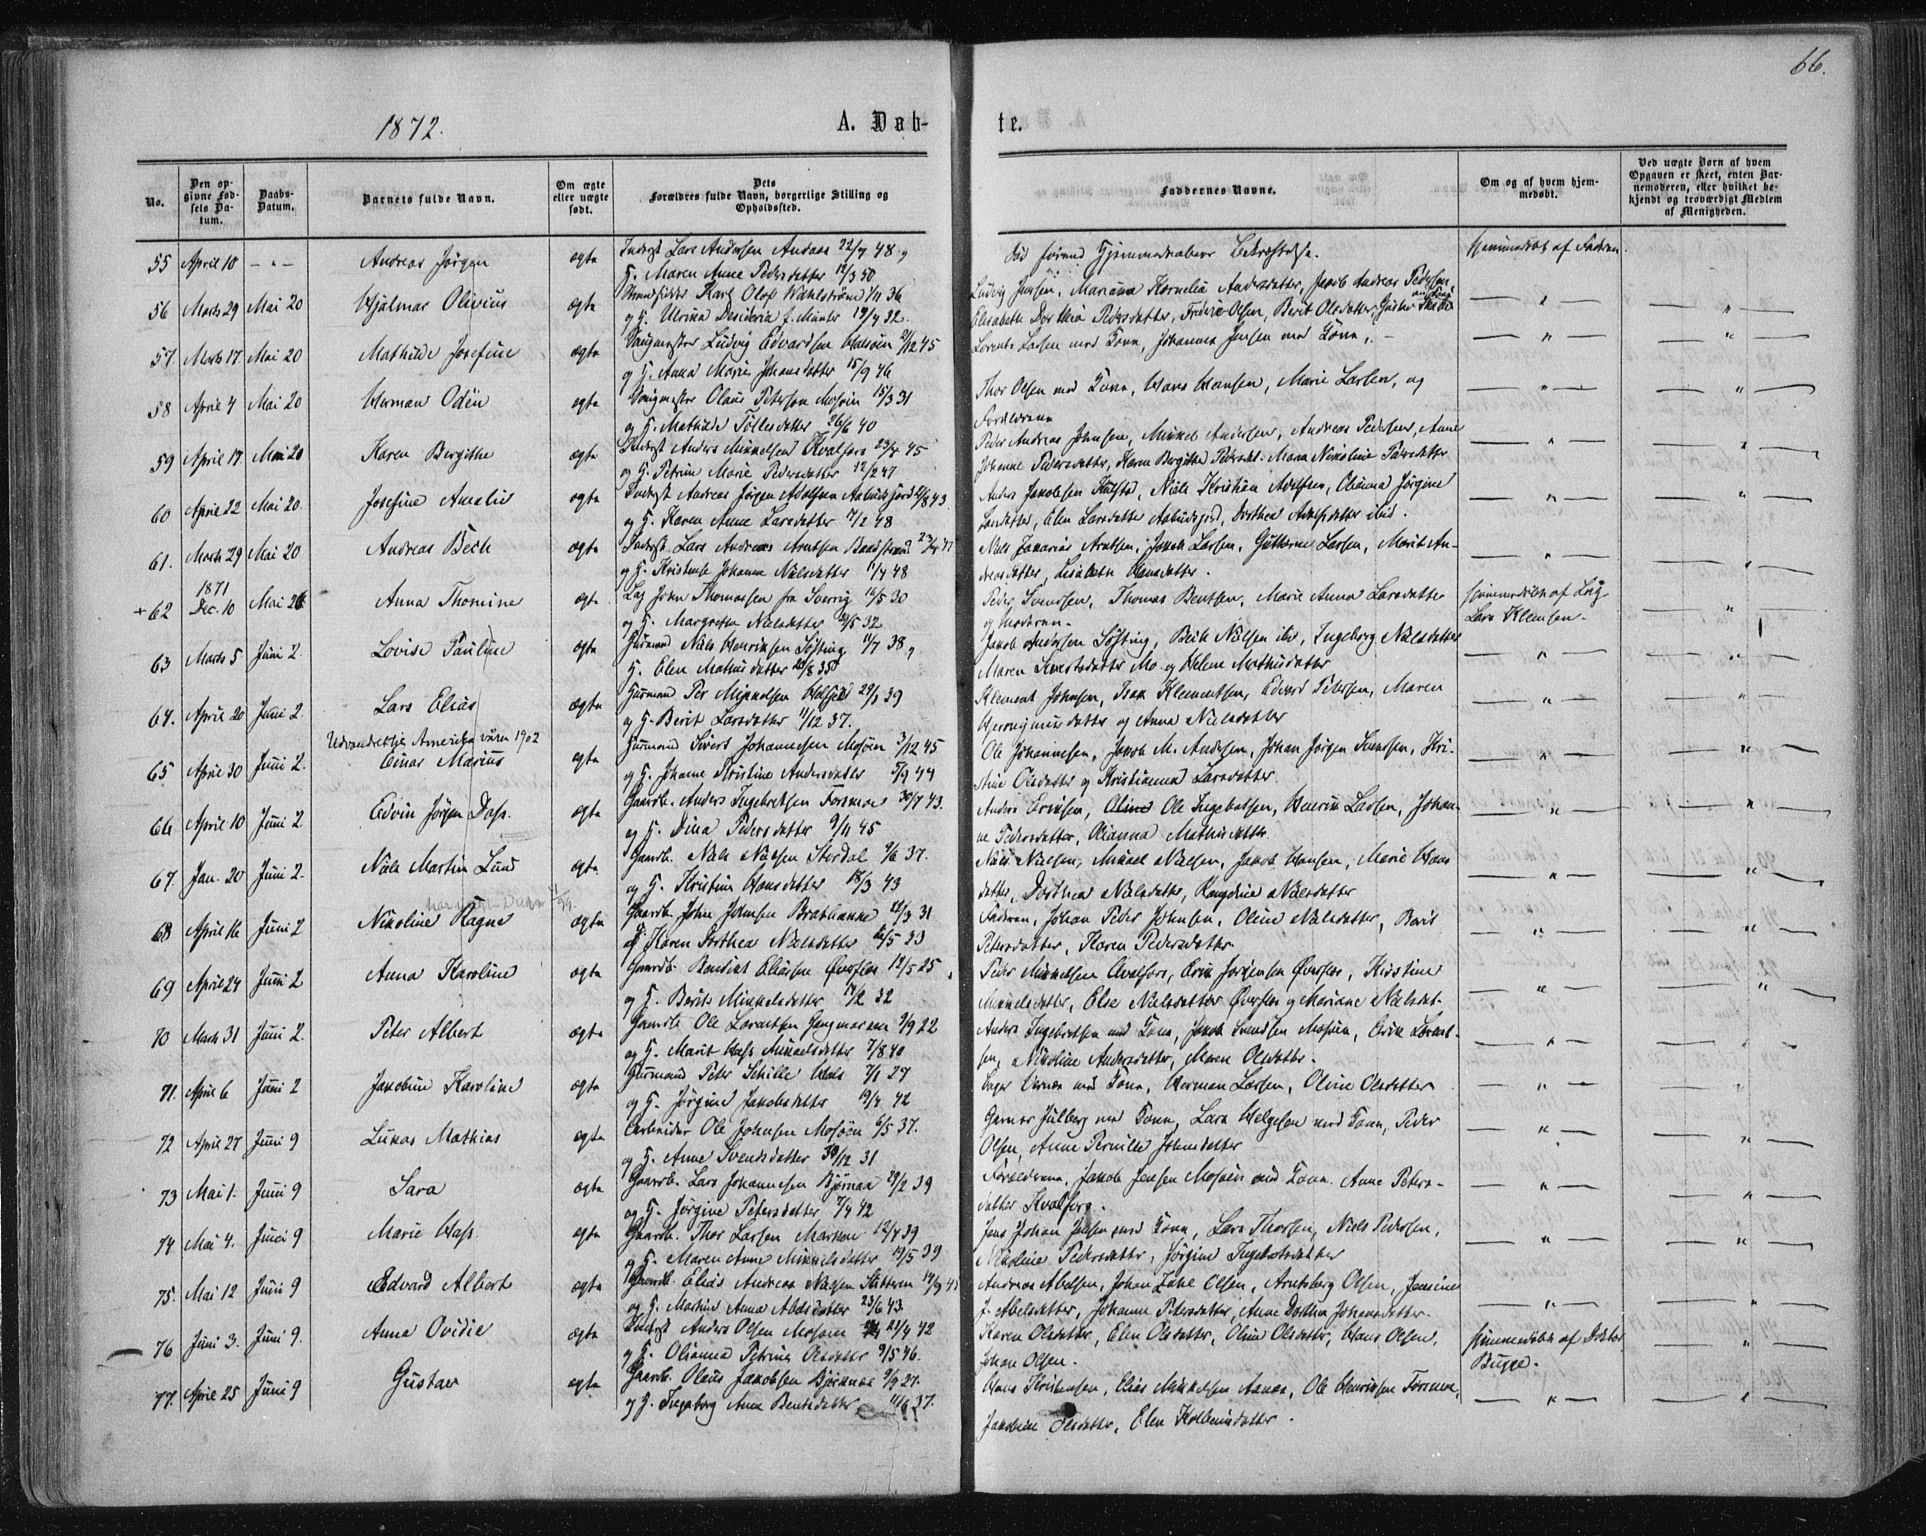 66.
1872.
A. Døb-
te.
No.
Den op-
givne Fød-
sels Da-
tum.
Daabs-
Datum.
Barnets fulde Navn.
Om ægte
eller uægte
født.
Dets
Forældres fulde Navn, borgerlige Stilling og
Opholdssted.
Faddernes Navne.
Om og af hvem hjem-
medøbt.
Ved uægte Børn af hvem
Opgaven er skeet, enten Bar-
nemoderen, eller hvilket be-
kjendt og troværdigt Medlem
af Menigheden.
55 April 10 -"- Andreas Jørgen ægte Inderst Lars Andersen 22/7 48 og
H. Maren Anne Pedersdatter 12/3 50
hjemmedøbt af Faderen.
56 Marts 29 Mai 20 Hjalmar Olivius ægte Karl Olof Wahlstrøm 1/11 36
og H. Ulrika Desideria f. 19/4 32.
Ludvig Jensen, Marianna Kornelia Andersdatter, Jakob Andreas Pedersen,
Elisabeth Dorthea Pedersdatter, Fredrik Olsen, Berit Olsdatter,
57 Marts 17. Mai 20 Mathilde Josefine ægte Ludvig Edvardsen 21/12 45
og H. Anna Marie Johansdatter 15/9 46
Lorents Larsen med Kone, Johannes Jensen med Kone.
58 April 4 Mai 20 Herman Odin ægte Olaus Peterson Mosøen 15/3 31
og H. Mathilde Tollefsdatter 26/6 40
Thor Olsen med Kone, Hans Hansen, Marie Larsen, og
Forældrene
59 April 17 Mai 20 Karen Bergithe ægte Inderst Anders Mikkelsen Kvalfors 23/4 45
og H. Petrine Marie Pedersdatter 12/2 47
Peder Andreas Johnsen, Mikkel Andersen, Andreas Pedersen, Anne
Johanne Pedersdatter, Karen Bergitha Pedersdt. Maren Nikoline Pedersdatter
60 April 22 Mai 20. Josefine Amalie ægte Inderst Andreas Jørgen Adolfsen
og H. Karen Anne Larsdatter 17/2 48
Anders Jakobsen Hulstad, Niels Kristian Adolfsen, Olianna Jørgine
Larsdatter, Elen Larsdatter, Dorthea Adolfsdatter ibid.
61. Marts 29 Mai 20 Andreas Bech ægte Inderst Lars Andreas Arntsen Baadstrand
og H. Kristense Johanna Nielsdatter 11/4 48
Niels Zakarias Arntsen, Jakob Larsen, Guttorm Larsen, Marit An-
dreasdatter, Lisabeth Hansdatter.
+ 62 1871
Dec. 10 Mai 26 Anna Thomine ægte Lap John Thomassen fra Sverrig 12/5 30
og H. Margrethe Nielsdatter 12/5 32
Peder Svendsen, Thomas Bentsen, Marie Anna Larsdatter
og Moderen.
hjemmedøbt af Lap
Lars Klemsen.
63 Marts 5 Juni 2. Lovise Pauline ægte Husmand Niels Henriksen Søfting 11/7 38 og
H. Elen Mathisdatter 15/8 35
Jakob Andersen Søfting, Beth Nilsen ibd, Ingeborg Nielsdatter
Maren Sivertsdatter Mo. og Helene Mathisdatter
64. April 20 Juni 2. Lars Elias ægte Husmand Per Mikkelsen 29/1 39
og H. Berit Larsdatter 11/12 37.
Klement Johnsen, Isak Klementsen, Edvard Petersen, Maren
Hieronymusdatter og Anna Nielsdatter
Udvandret til Amerika våren 1902
65 April 30 Juni 2. Einar Marius ægte Husmand Sivert Johannesen Mosøen 3/12 45
og H. Johanne Kristine Andersdatter 5/9 44
Ole Johannesen, Jakob M. Andersen, Johan Jørgen Svendsen, Kri-
stine Olsdatter og Kristianna Larsdatter.
66 April 10 Juni 2. Edvin Jørgen Dass. ægte Gaardb. Anders Ingebretsen Forsmo 30/7 43.
og H. Dina Pedersdatter 9/11 45
Anders Eriksen, Ole Ingebretsen, Henrik Larsen, Johan-
ne Pedersdatter, Olianna Mathisdatter
67. Jan. 20 Juni 2. Niels Martin Lund ægte Gaardb. Niels Nielsen Stordal 9/6 37.
og H. Kristine Hansdatter 18/3 43
Niels Nielsen, Mikael Nielsen, Jakob Hansen, Marie Hans
datter, Dorthea Nielsdatter, Nielsdatter
68 April 16 Juni 2 Nikoline Ragna ægte Gaardb. John Johnsen Brathanne 12/3 31
og H. Karen Dorthea Nielsdatter 16/5 33
Faderen, Johan Peder Johnsen, Oline Nielsdatter, Berit
Petersdatter, Karen Pedersdatter
69 April 24 Juni 2 Anna Karoline ægte Gaardb. Benedikt Eliassen Øverfos 12/5 25
og H. Berith Mikkelsdatter 17/2 32
Peder Mikkelsen Kvalfors, Erik Jørgensen Øverfos, Kirstine
Mikkelsdatter, Else Nielsdatter Øverfos og Mariane Nielsdat.
70 Marts 31 Juni 2. Peter Albert ægte Gaardb. Ole Larentsen 9/9 22
og H. Marit Hass Mikkelsdatter 7/8 40
Anders Ingebretsen med Kone, Jakob Svendsen Mosøen, Erik Lorent-
sen, Nikoline Andersdatter, Maren Olsdatter.
71. April 6 Juni 2 Jakobine Karoline ægte Husmand Peter Schille Hals 7/1 27
og H. Jørgine Jakobsdatter 19/4 42
med Kone, Herman Larsen, Oline Olsdatter
72 April 27 Juni 9 Lukas Mathias ægte Arbeider Ole Johnsen Mosøen 6/5 37.
og H. Anne Svendsdatter 30/12 31
Garver Julberg med Kone, Lars Helgesen med Kone, Peder
Olsen, Anne Pernille Johnsdatter
73 Mai 1. Juni 9 Sara ægte Gaardb. Lars Johannesen Bjørnaa 29/2 39
og H. Jørgine Petersdatter 7/4 42
Forældrene, Jakob Jensen Mosøen med Kone. Anne Peters-
datter Kvalfors.
74 Mai 4. Juni 9 Marie Hass. ægte Gaardb. Thor Larsen 12/4 39
og H. Maren Anne Mikkelsdatter 19/5 39
Jens Johan Jensen med Kone, Lars Thorsen, Niels Pedersen,
Nikoline Pedersdatter, Jørgine Ingebretsdatter
75. Mai 12 Juni 9 Edvard Albert ægte Gaardb. Elias Andreas Nilsen
og H. Martine Anna Abelsdatter 23/6 43.
Andreas Abelsen, Johan Zakr. Olsen, Arntsberg Olsen, Jensine
J. Abelsdatter, Johanne Pedersdatter, Anne Dorthea Johansdatter.
76 Juni 3. Juni 9. Anna Ovidie ægte Inderst Anders Olsen Mosøen 21/4 42
og H. Olianna Petrine Olsdatter 9/5 46.
Karen Olsdatter, Elen Olsdatter, Oline Olsdatter, Hans Olsen,
Johan Olsen.
hjemmedøbt af Doktor
Bugge.
77. April 25 Juni 9 Gustav ægte Gaardb. Olaus Jakobsen Bjørnaa 9/9 27.
og H. Ingeborg Anne Bentsdatter 11/6 37.
Hans Kristensen, Elias Mikkelsen, Ole Henriksen Forsmo,
Jakobine Olsdatter, Elen Kolbeinsdatter.